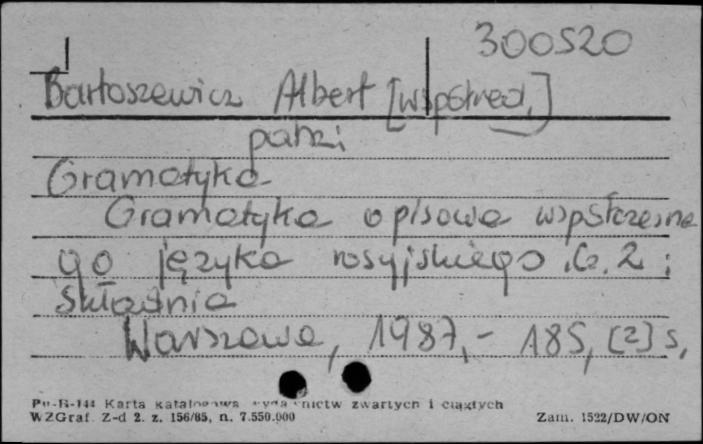 300520
Bartoszewicz Albert [współred.]
patrz:
Gramatyka
Gramatyka opisowa współczesne
go języka rosyjskiego. Cz. 2:
Składnia
Warszawa, 1987, - 185, [2] s,
Pu-B-144 Karta katalogowa wydawnictw zwartych i ciągłych
WZGraf. Z-d 2. z. 156/85, n. 7.550.000 Zam. 1522/DW/ON